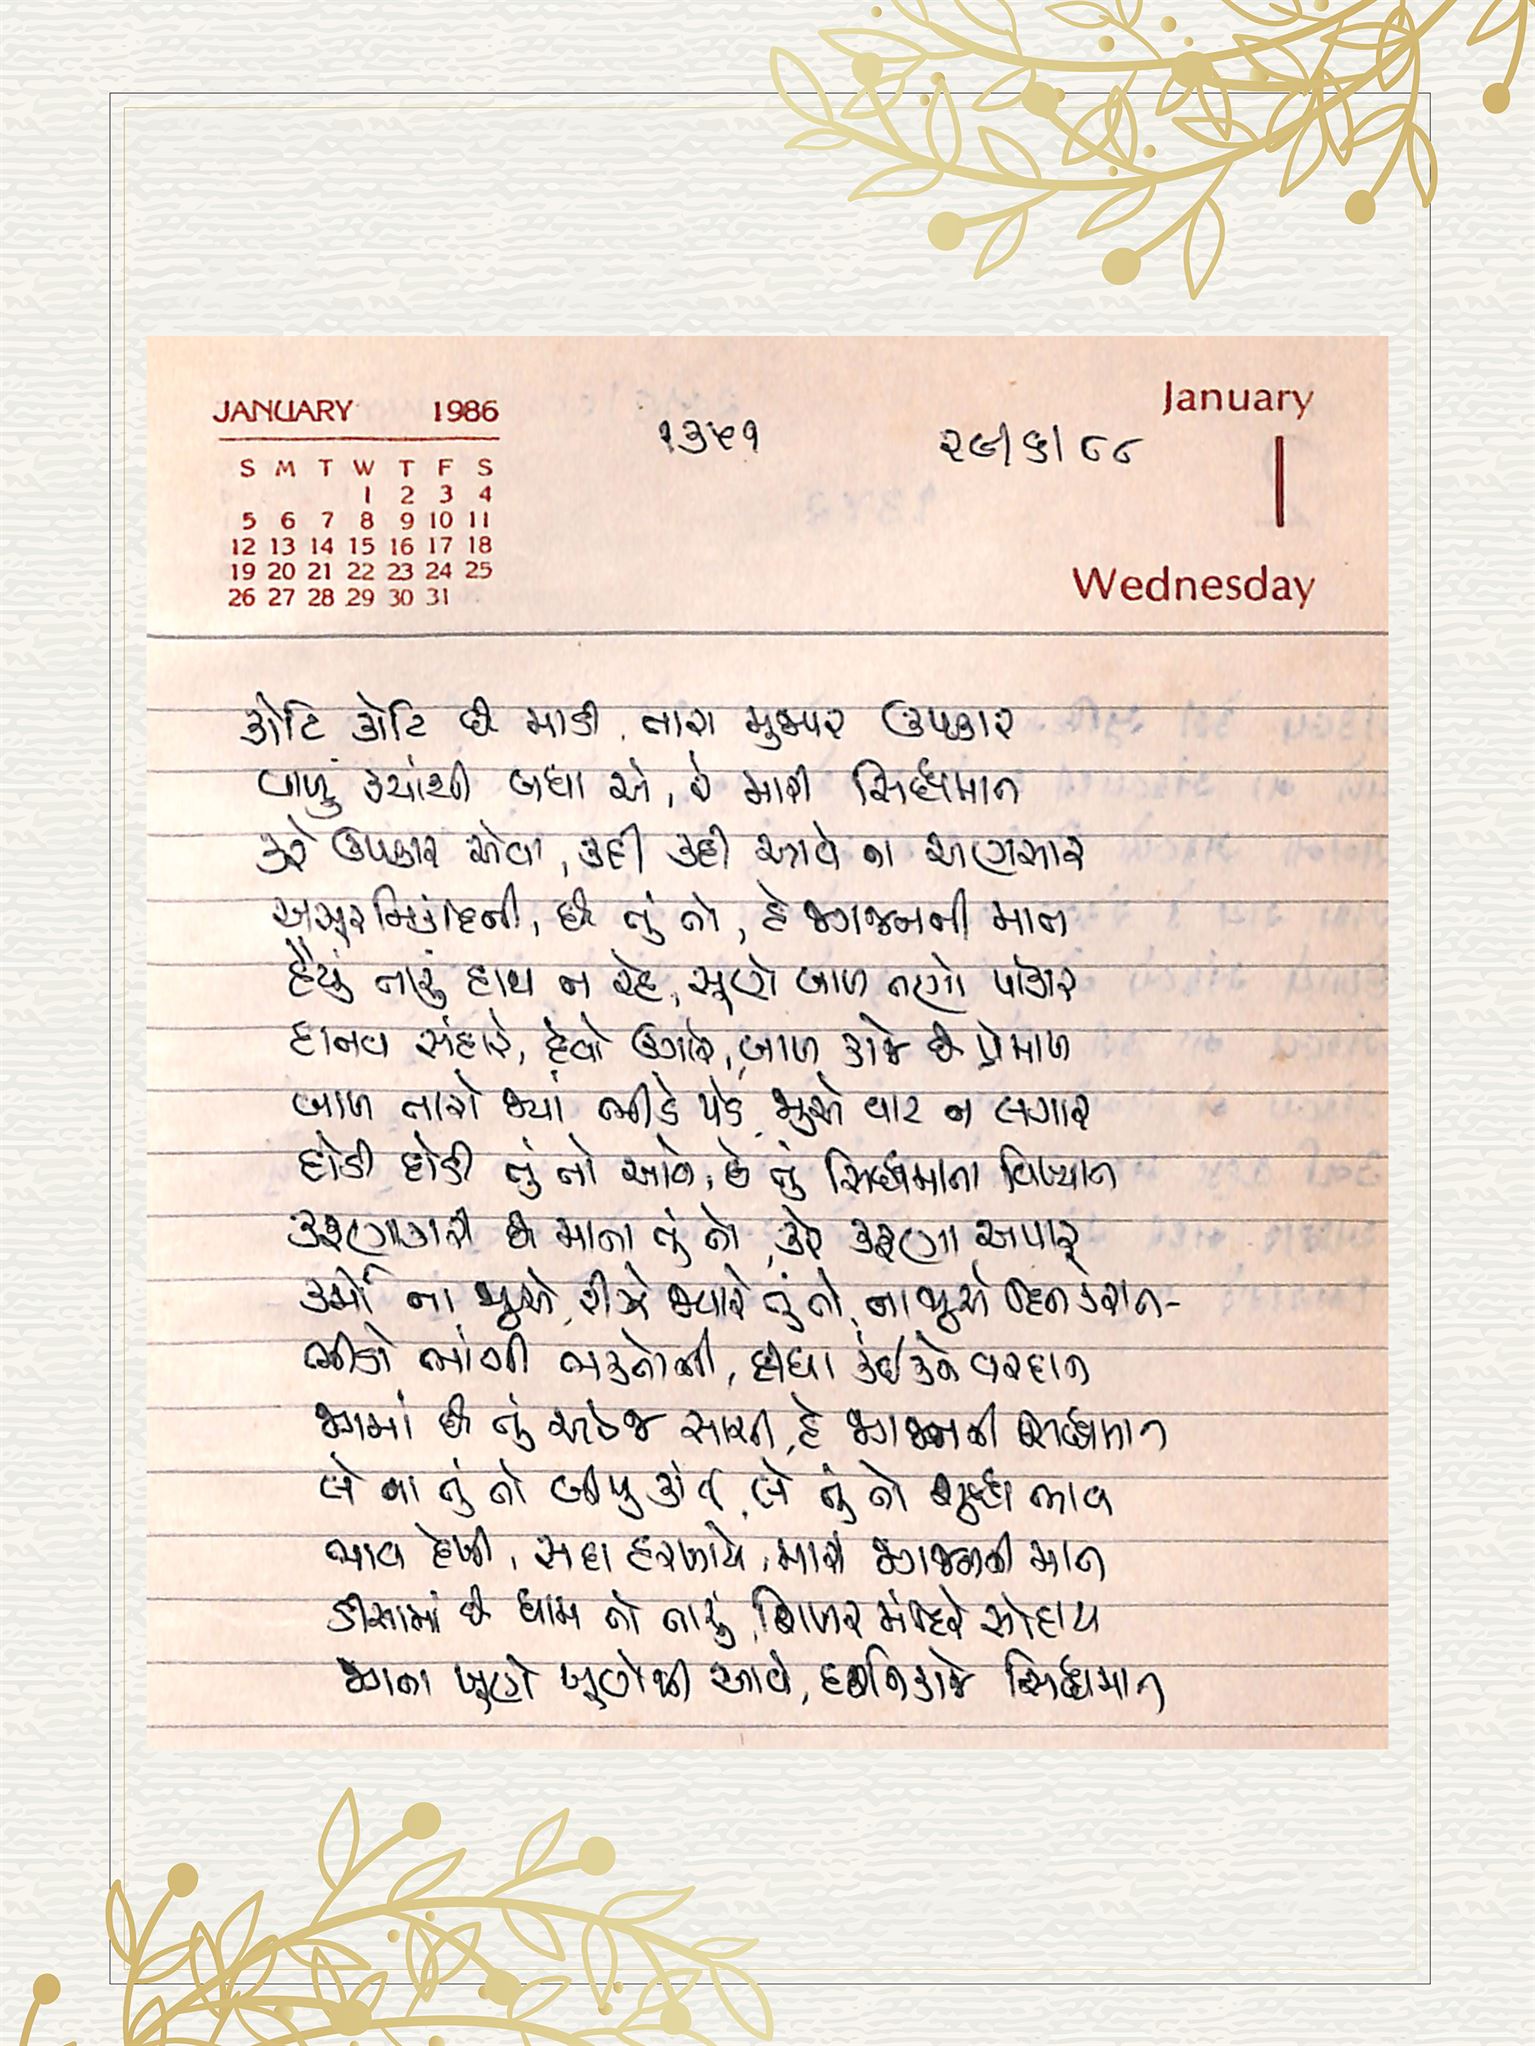 JANUARY 1986
S M T W T F S
1 2 3 4
5 6 7 8 9 10 11
12 13 14 15 16 17 18
19 20 21 22 23 24 25
26 27 28 29 30 31
૧૩૫૧
૨૯/૬/૮૮
January
1
Wednesday
કોટિ કોટિ છે માડી, તારા મુજપર ઉપકાર
વાળું ક્યાંથી બધા એ, રે મારી સિધ્ધમાત
કરે ઉપકાર એવા, કદી કદી આવે ના અણસાર
અસૂર નિકંદિની, છે તું તો, હે જગજનની માત
હૈયું તારું હાથ ન રહે, સૂણે બાળ તણો પોકાર
દાનવ સંહારે, દેવો ઉગારે, બાળ કાજે છે પ્રેમાળ
બાળ તારો જ્યાં ભીડે પડે, જુએ વાર ન લગાર
દોડી દોડી તું તો આવે, છે તું સિધ્ધમાતા વિખ્યાત
કરૂણાકારી છે માતા તું તો, કરે કરૂણા અપાર
કર્મો ના જુએ, રીઝે જ્યારે તું તો, ના જુએ દિન કે રાત-
ભીડો ભાંગી ભક્તોની, દીધા કંઈકને વરદાન
જગમાં છે તું એક જ સાચી, હે જગજનની સિધ્ધમાત
લે ના તું તો બીજું કાંઈ, લે તું તો શુધ્ધ ભાવ
ભાવ દેખી, સદા હરખાયે, મારી જગજનની માત
ડીસામાં છે ધામ તો તારું, શિખર મંદિરે સોહાય
જગના ખૂણે ખૂણેથી આવે, દર્શન કાજે સિધ્ધમાત